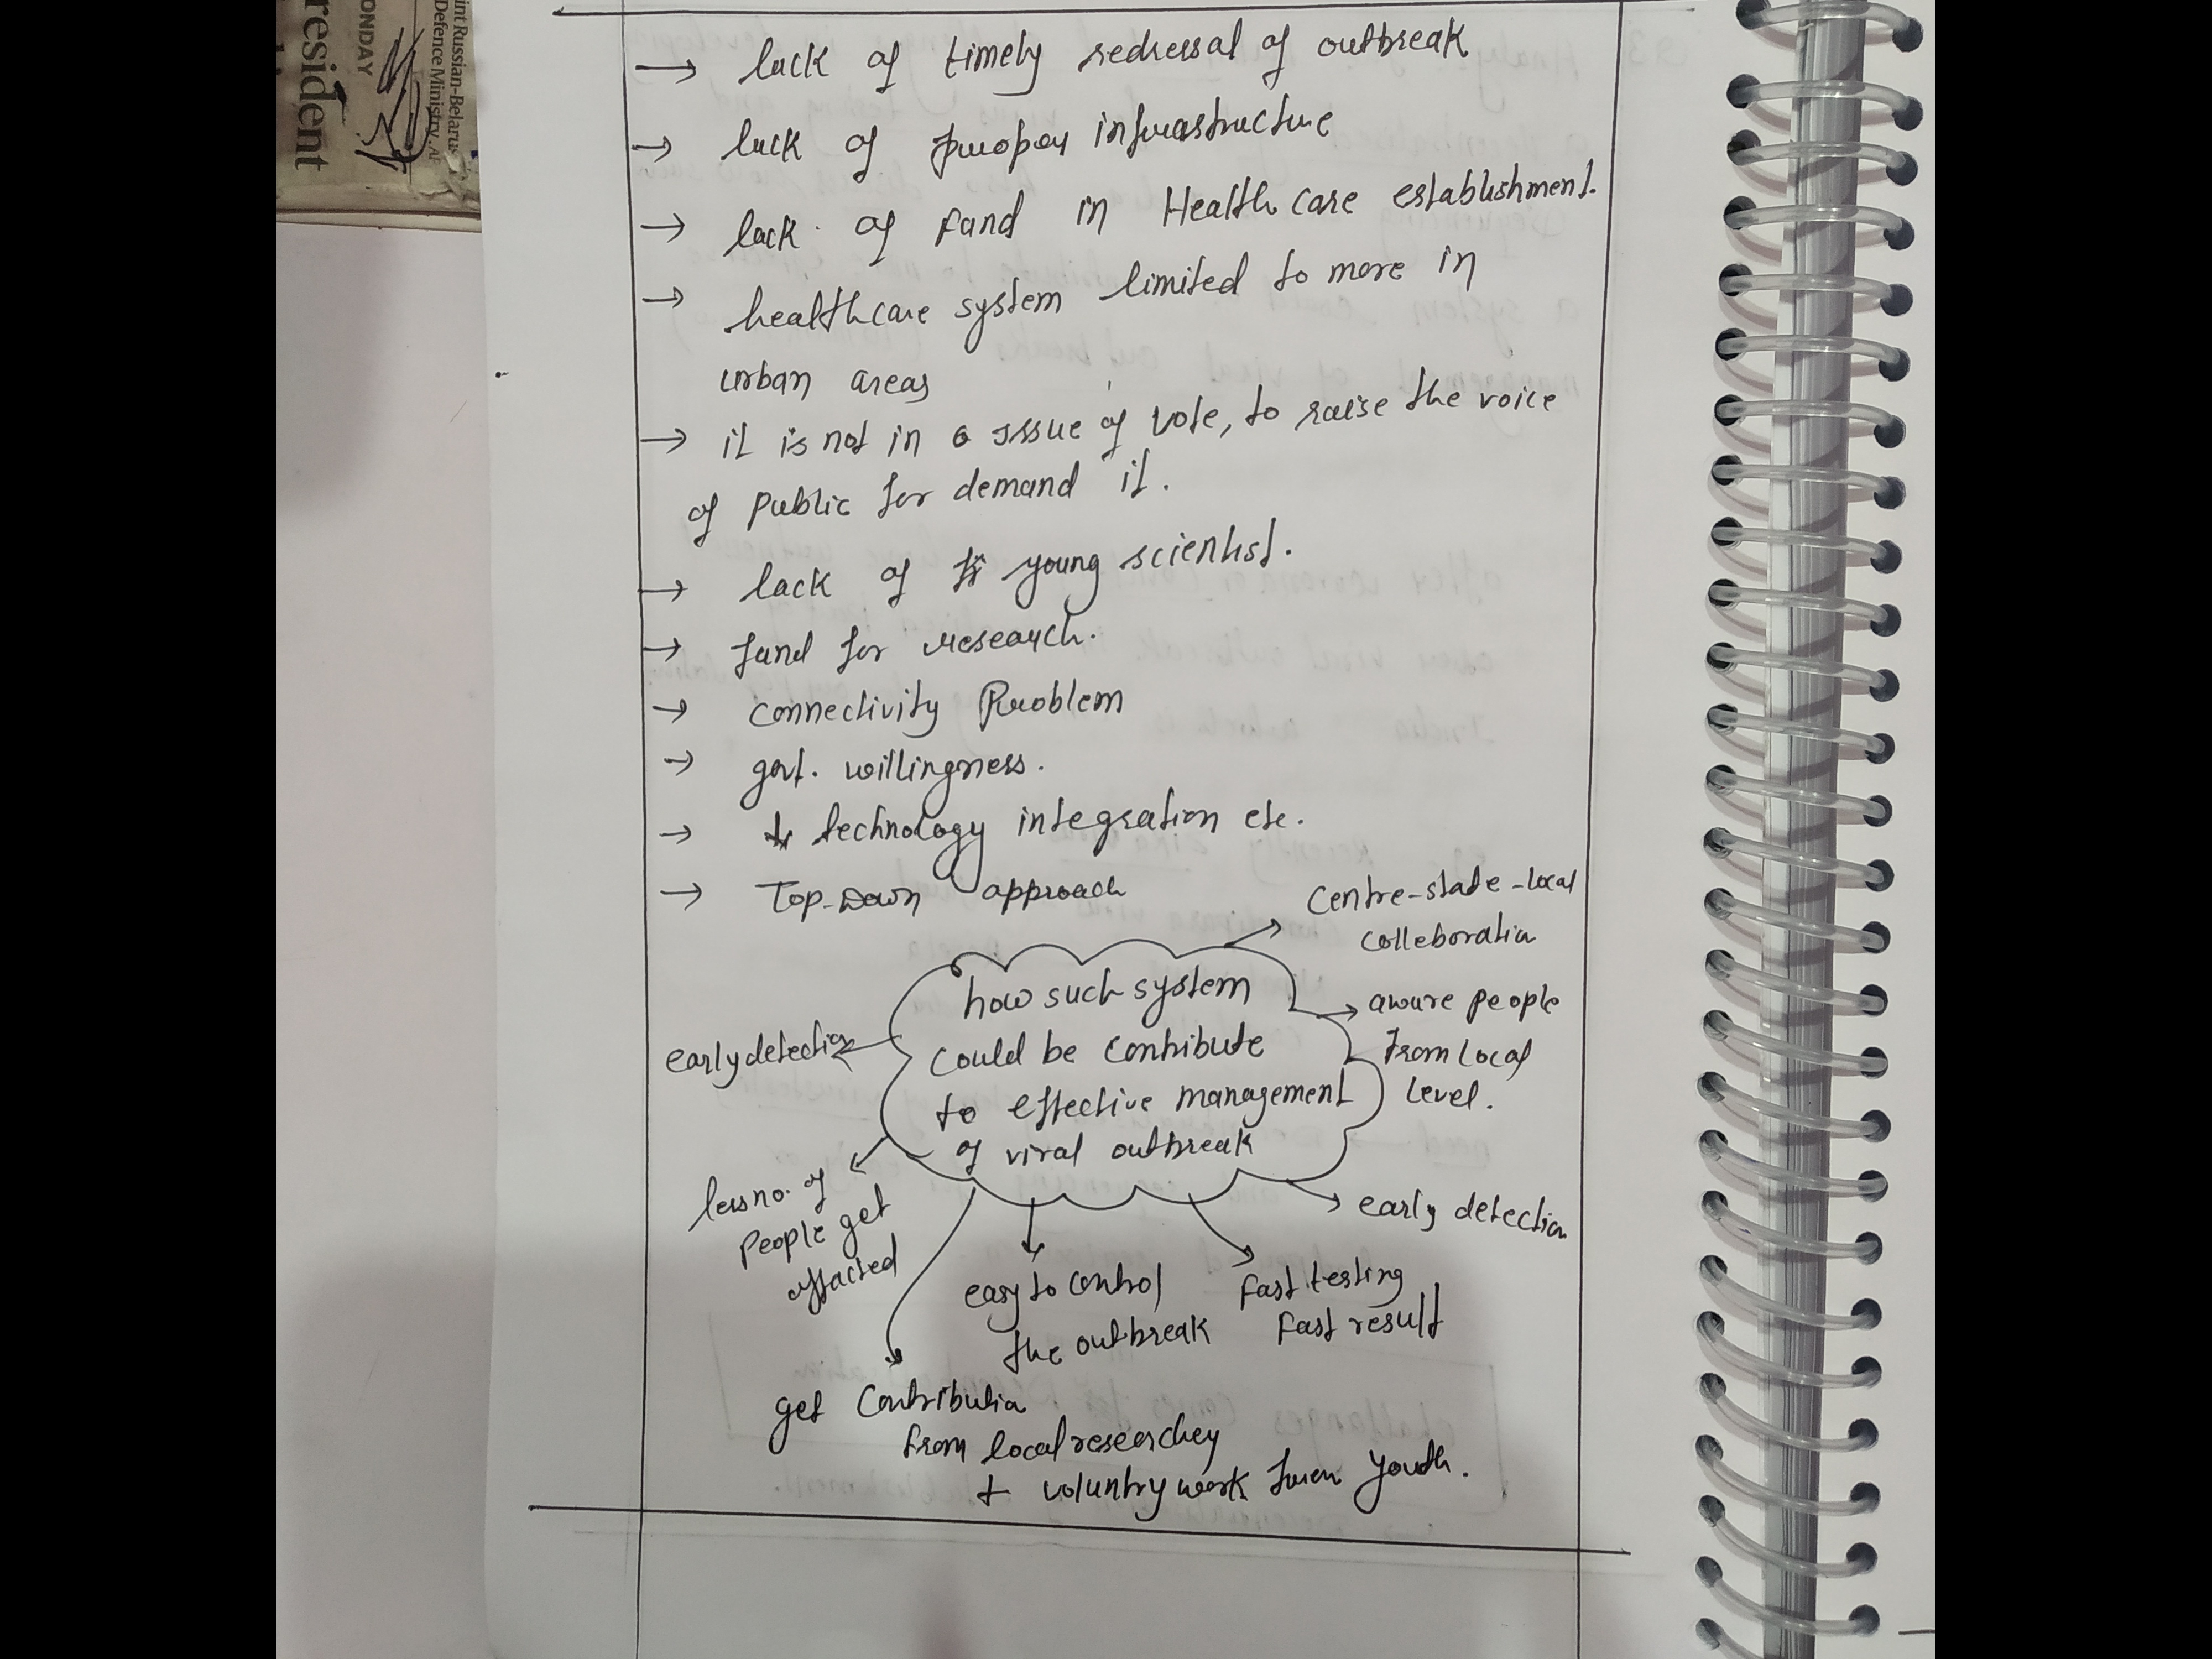 int Russian-Belarus
Defence Ministry. AF
ONDAY
resident
→ lack of timely redressal of outbreak
→ lack of proper infrastructure
→ lack of fand in Healthcare establishment.
→ healthcare system limited to more in
urban areas
→ it is not in a issue of vote, to raise the voice
of public for demand it.
→ lack of young scientist.
→ fand for research.
→ connectivity Problem
→ govt. willingness.
→ technology integration etc.
→ Top-Down approach
Centre-state-local
colleboration
how such system
could be contribute
to effective management
of viral outbreak
aware people
from local
level.
early detection
less no. of
people get
affacted
early detection
easy to control
the outbreak
fast testing
fast result
get Contribution
from local researchey
+ voluntry work from youth.